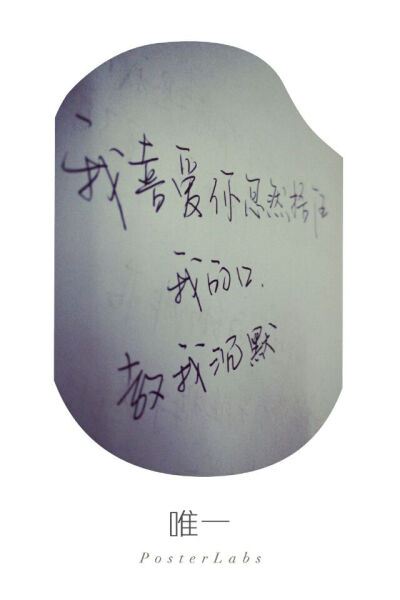 我喜爱你忽然捂住
我的口.
教我沉默
唯一
PosterLabs